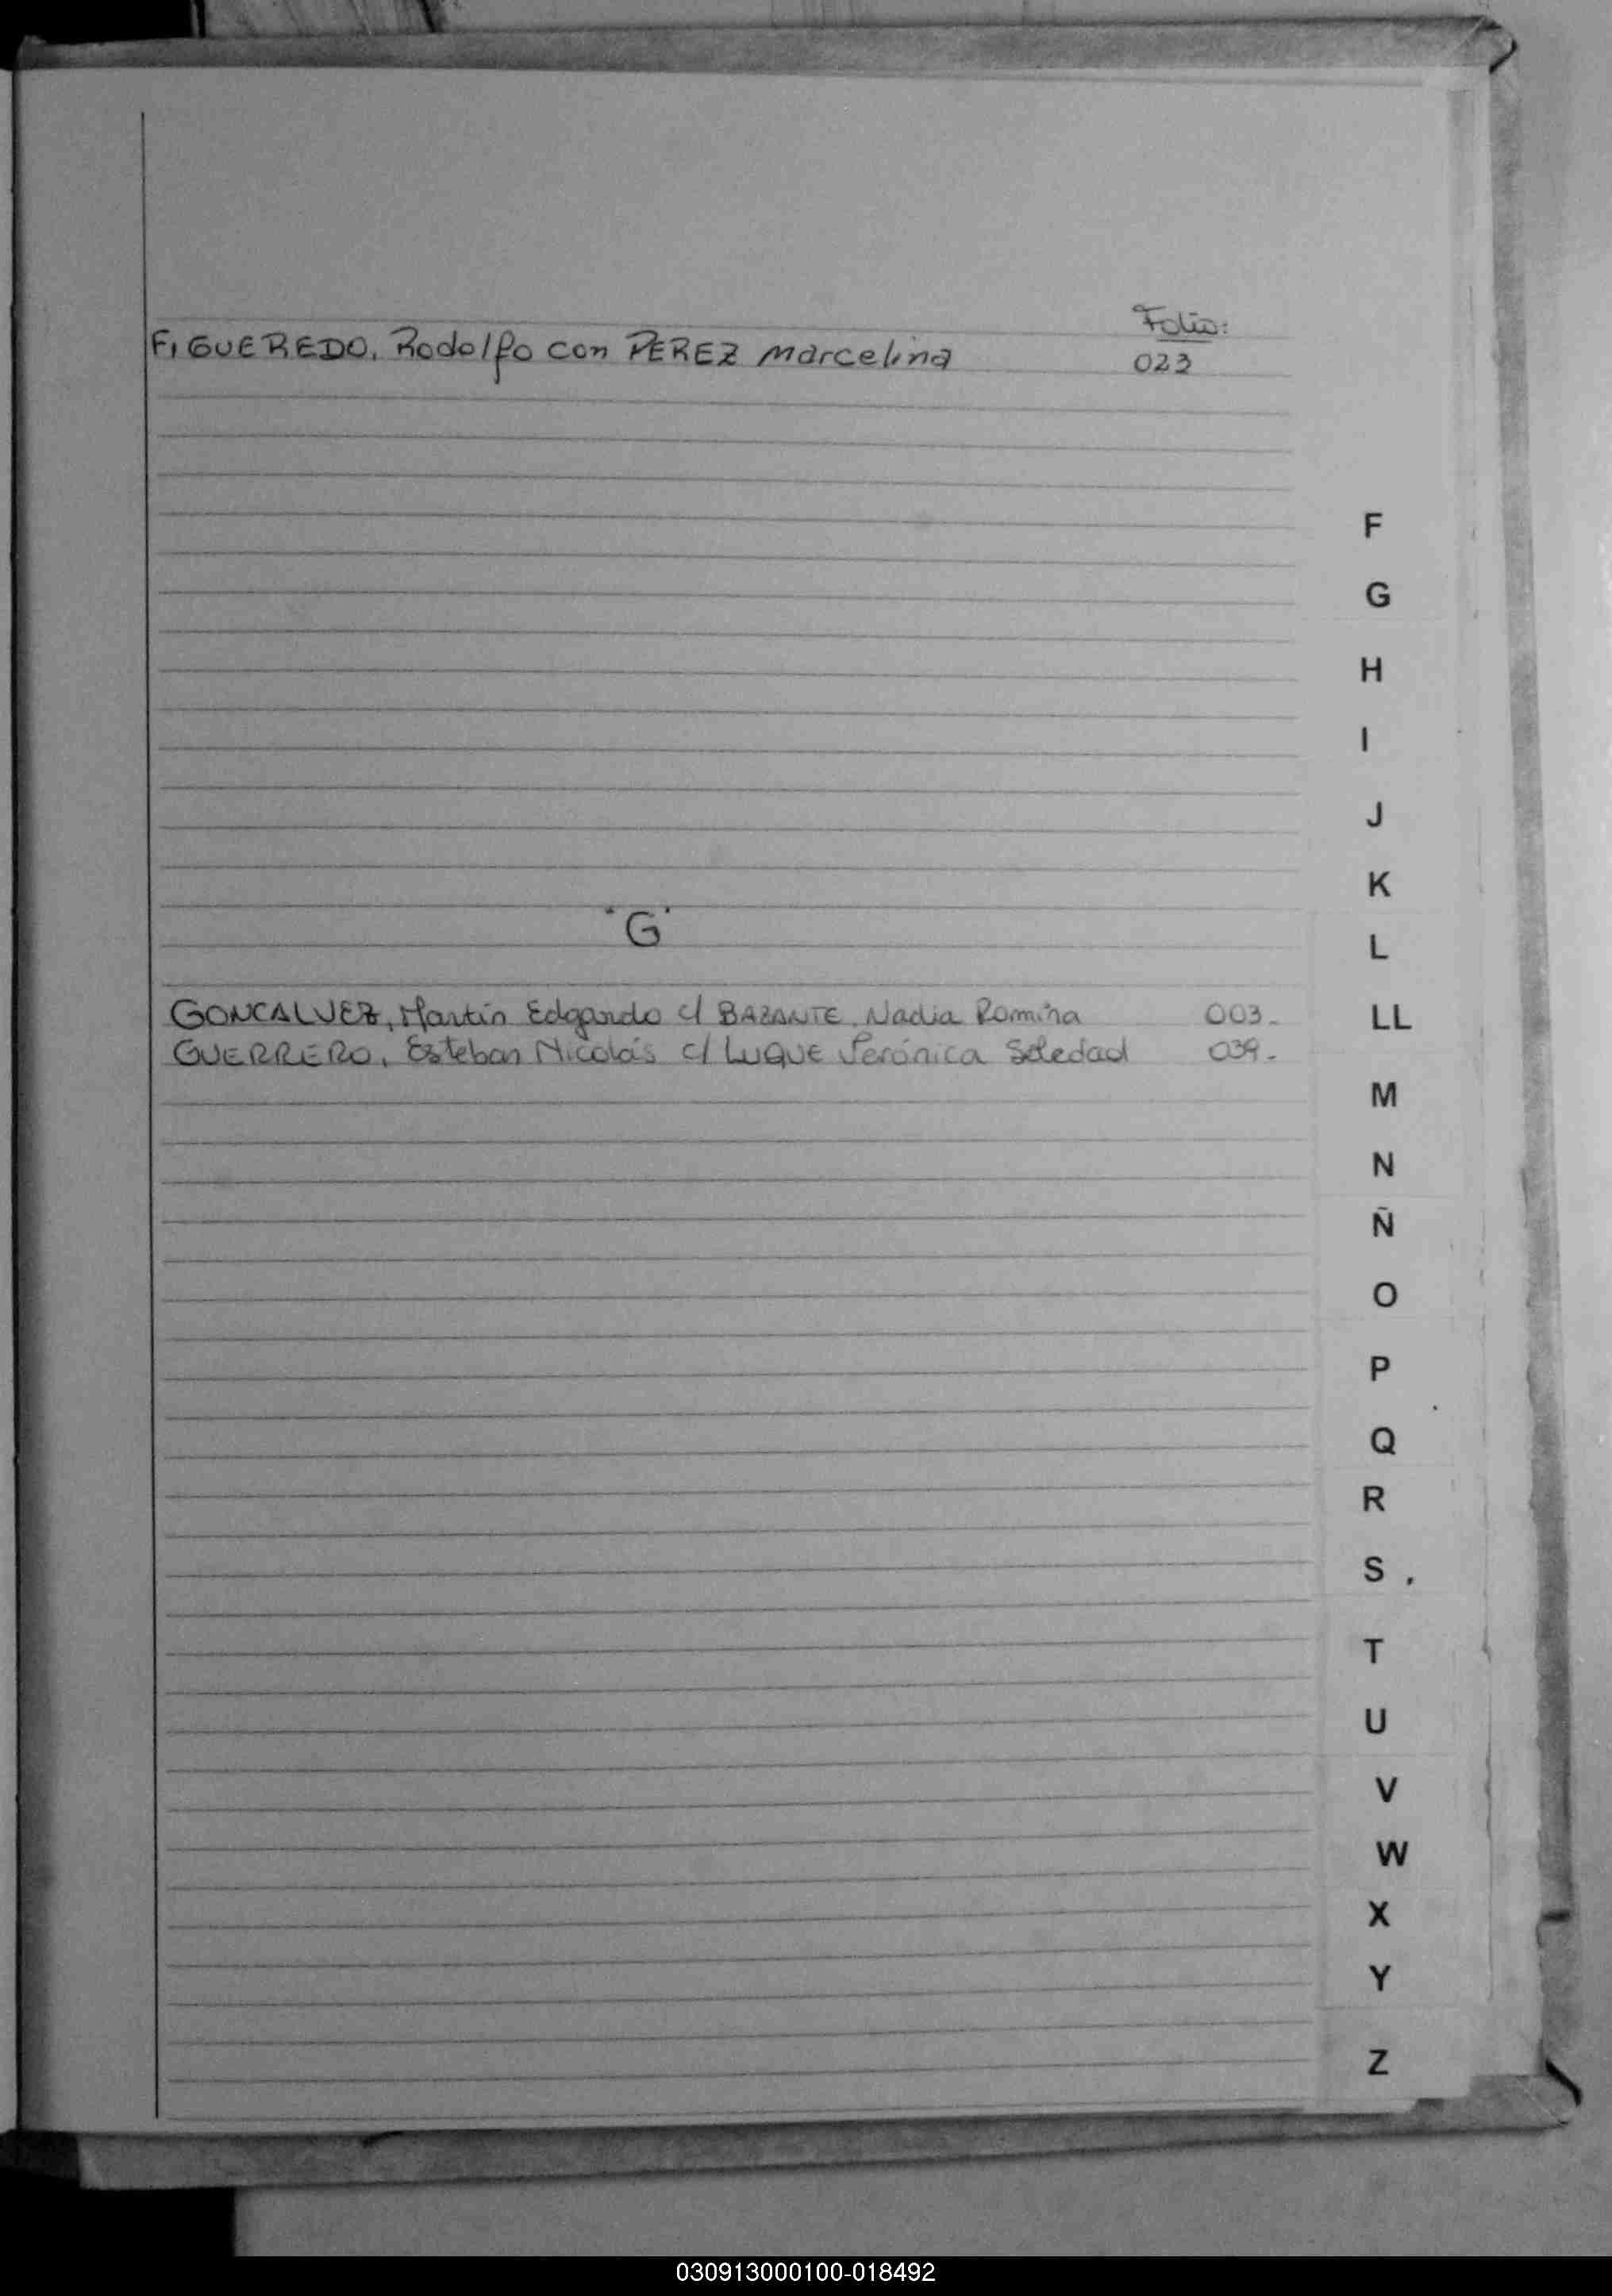 Folio:
FIGUEREDO, Rodolfo con PEREZ Marcelina 023
F
G
H
I
J
K
"G"
L
GONCALVEZ, Martín Edgardo c/ BAZANTE, Nadia Romina 003.
LL
GUERRERO, Esteban Nicolás c/ LUQUE Verónica Soledad 039.
M
N
Ñ
O
P
Q
R
S
T
U
V
W
X
Y
Z
030913000100-018492